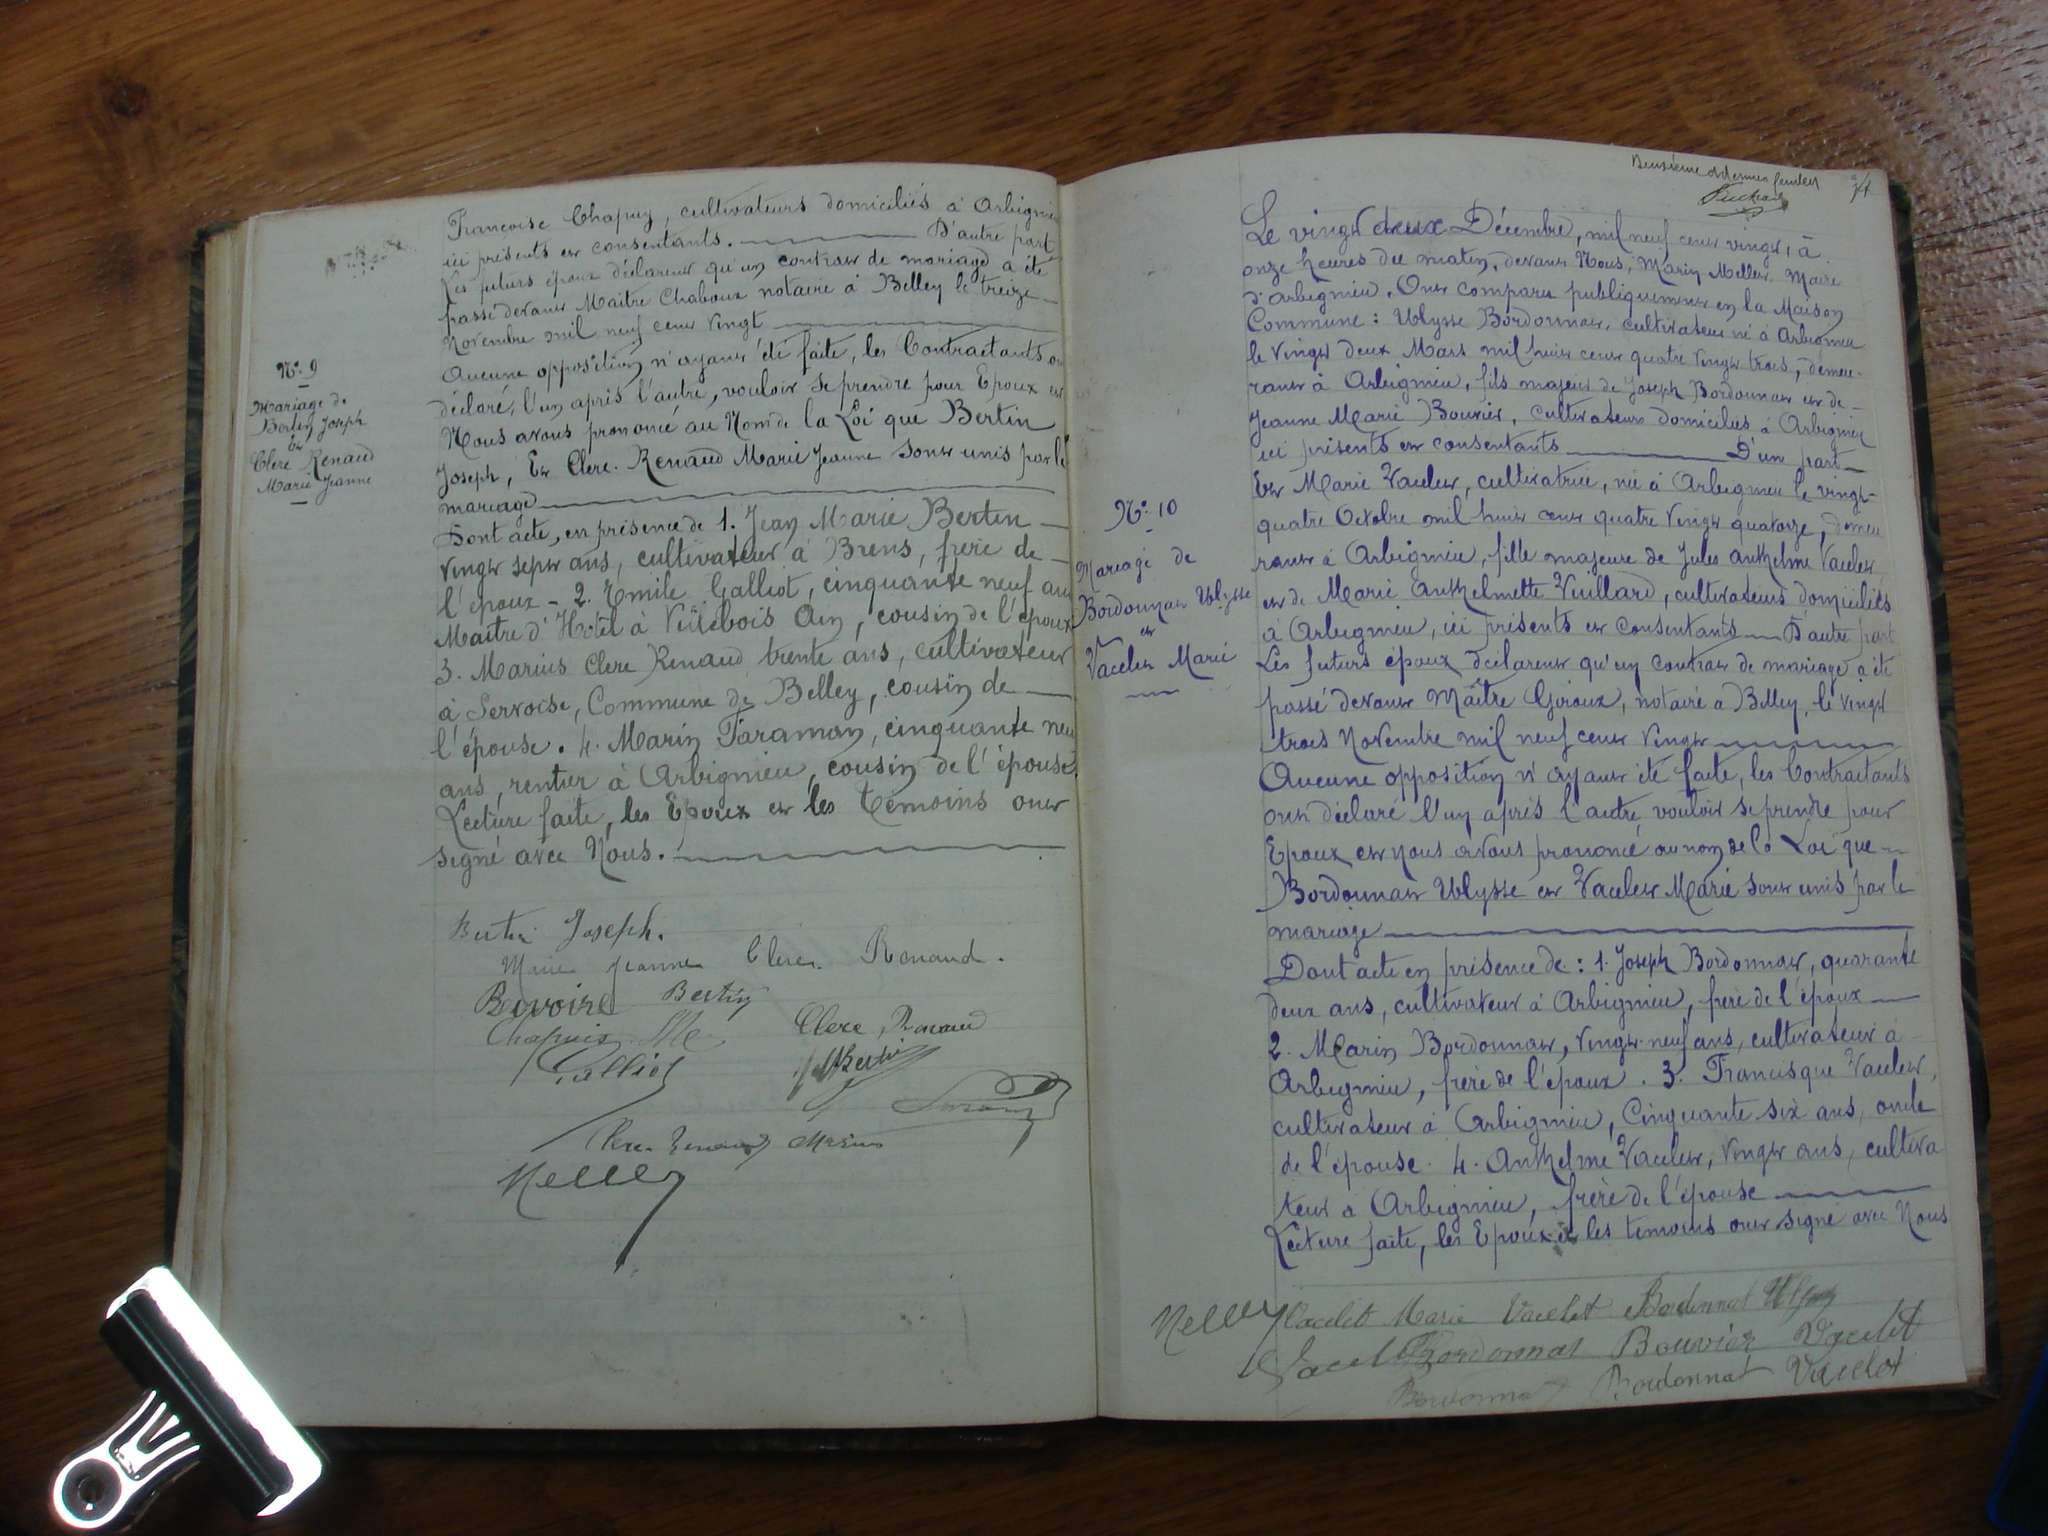 Françoise Chapuy, cultivateurs domiciliés à Arbignieu
ici présents et consentants. D'autre part
Les futurs époux déclarent qu'un contrat de mariage a été
passé devant Maitre Chaboux notaire à Belley le treize
Novembre mil neuf cent vingt
Aucune opposition n'ayant été faite, les Contractants ont
déclaré, l'un après l'autre, vouloir se prendre pour Epoux et
Nous avons prononcé au Nom de la Loi que Bertin
Joseph, Et Clerc-Renaud Marie Jeanne sont unis par le
mariage
Dont acte, en présence de 1. Jean Marie Bertin
vingt sept ans, cultivateur à Brens, frère de
l'époux - 2. Emile Galliot, cinquante neuf ans
Maitre d'Hotel à Villebois Ain, cousin de l'époux
3. Marius Clerc Renaud trente ans, cultivateur
à Servoise, Commune de Belley, cousin de
l'épouse. 4. Marin Taraman, cinquante neuf
ans, rentier à Arbignieu, cousin de l'épouse
Lecture faite, les Epoux et les témoins ont
signé avec Nous.
N° 9
Mariage de
Bertin Joseph
et
Clerc Renaud
Marie Jeanne
Bertin Joseph.
Marie Jeanne Clerc Renaud.
Bertin
Chapuis
Clerc Renaud
Galliot
Bertin
Clerc Renaud Marius
Mellet
Deuxième et dernier feuillet
Le vingt deux Décembre, mil neuf cent vingt, à
onze heures du matin, devant Nous, Marin Mellet Maire
d'Arbignieu. Ont comparu publiquement en la Maison
Commune : Ulysse Bordonnat, cultivateur né à Arbignieu
le vingt deux Mars mil huit cent quatre vingt trois, demeu-
rant à Arbignieu, fils majeur de Joseph Bordonnat et de
Jeanne Marie Bouvier, cultivateurs domiciliés à Arbignieu
ici présents et consentants D'un part
Et Marie Vacelet, cultivatrice, née à Arbignieu le vingt-
quatre Octobre mil huit cent quatre vingt quatorze, demeu
rant à Arbignieu, fille majeure de Jules Anthelme Vacelet
et de Marie Anthelmette Vuillard, cultivateurs domiciliés
à Arbignieu, ici présents et consentants D'autre part
Les futurs époux déclarent qu'un contrat de mariage a été
passé devant Maître Giroux, notaire à Belley, le vingt
trois Novembre mil neuf cent vingt
Aucune opposition n'ayant été faite, les Contractants
ont déclaré l'un après l'autre vouloir se prendre pour
Epoux et nous avons prononcé au nom de la Loi que
Bordonnat Ulysse et Vacelet Marie sont unis par le
mariage
Dont acte en présence de : 1. Joseph Bordonnat, quarante
deux ans, cultivateur à Arbignieu, frère de l'époux
2. Marin Bordonnat, vingt neuf ans, cultivateur à
Arbignieu, frère de l'époux. 3. Francisque Vacelet,
cultivateur à Arbignieu, Cinquante six ans, oncle
de l'épouse. 4. Anthelme Vacelet, vingt ans, cultiva
teur à Arbignieu, frère de l'épouse
Lecture faite, les Epoux et les témoins ont signé avec Nous
N° 10
Mariage de
Bordonnat Ulysse
et
Vacelet Marie
Mellet Vacelet Marie Vacelet Bordonnat Ulysse
Bordonnat Bouvier Vacelet
Bordonnat Bordonnat Vacelet